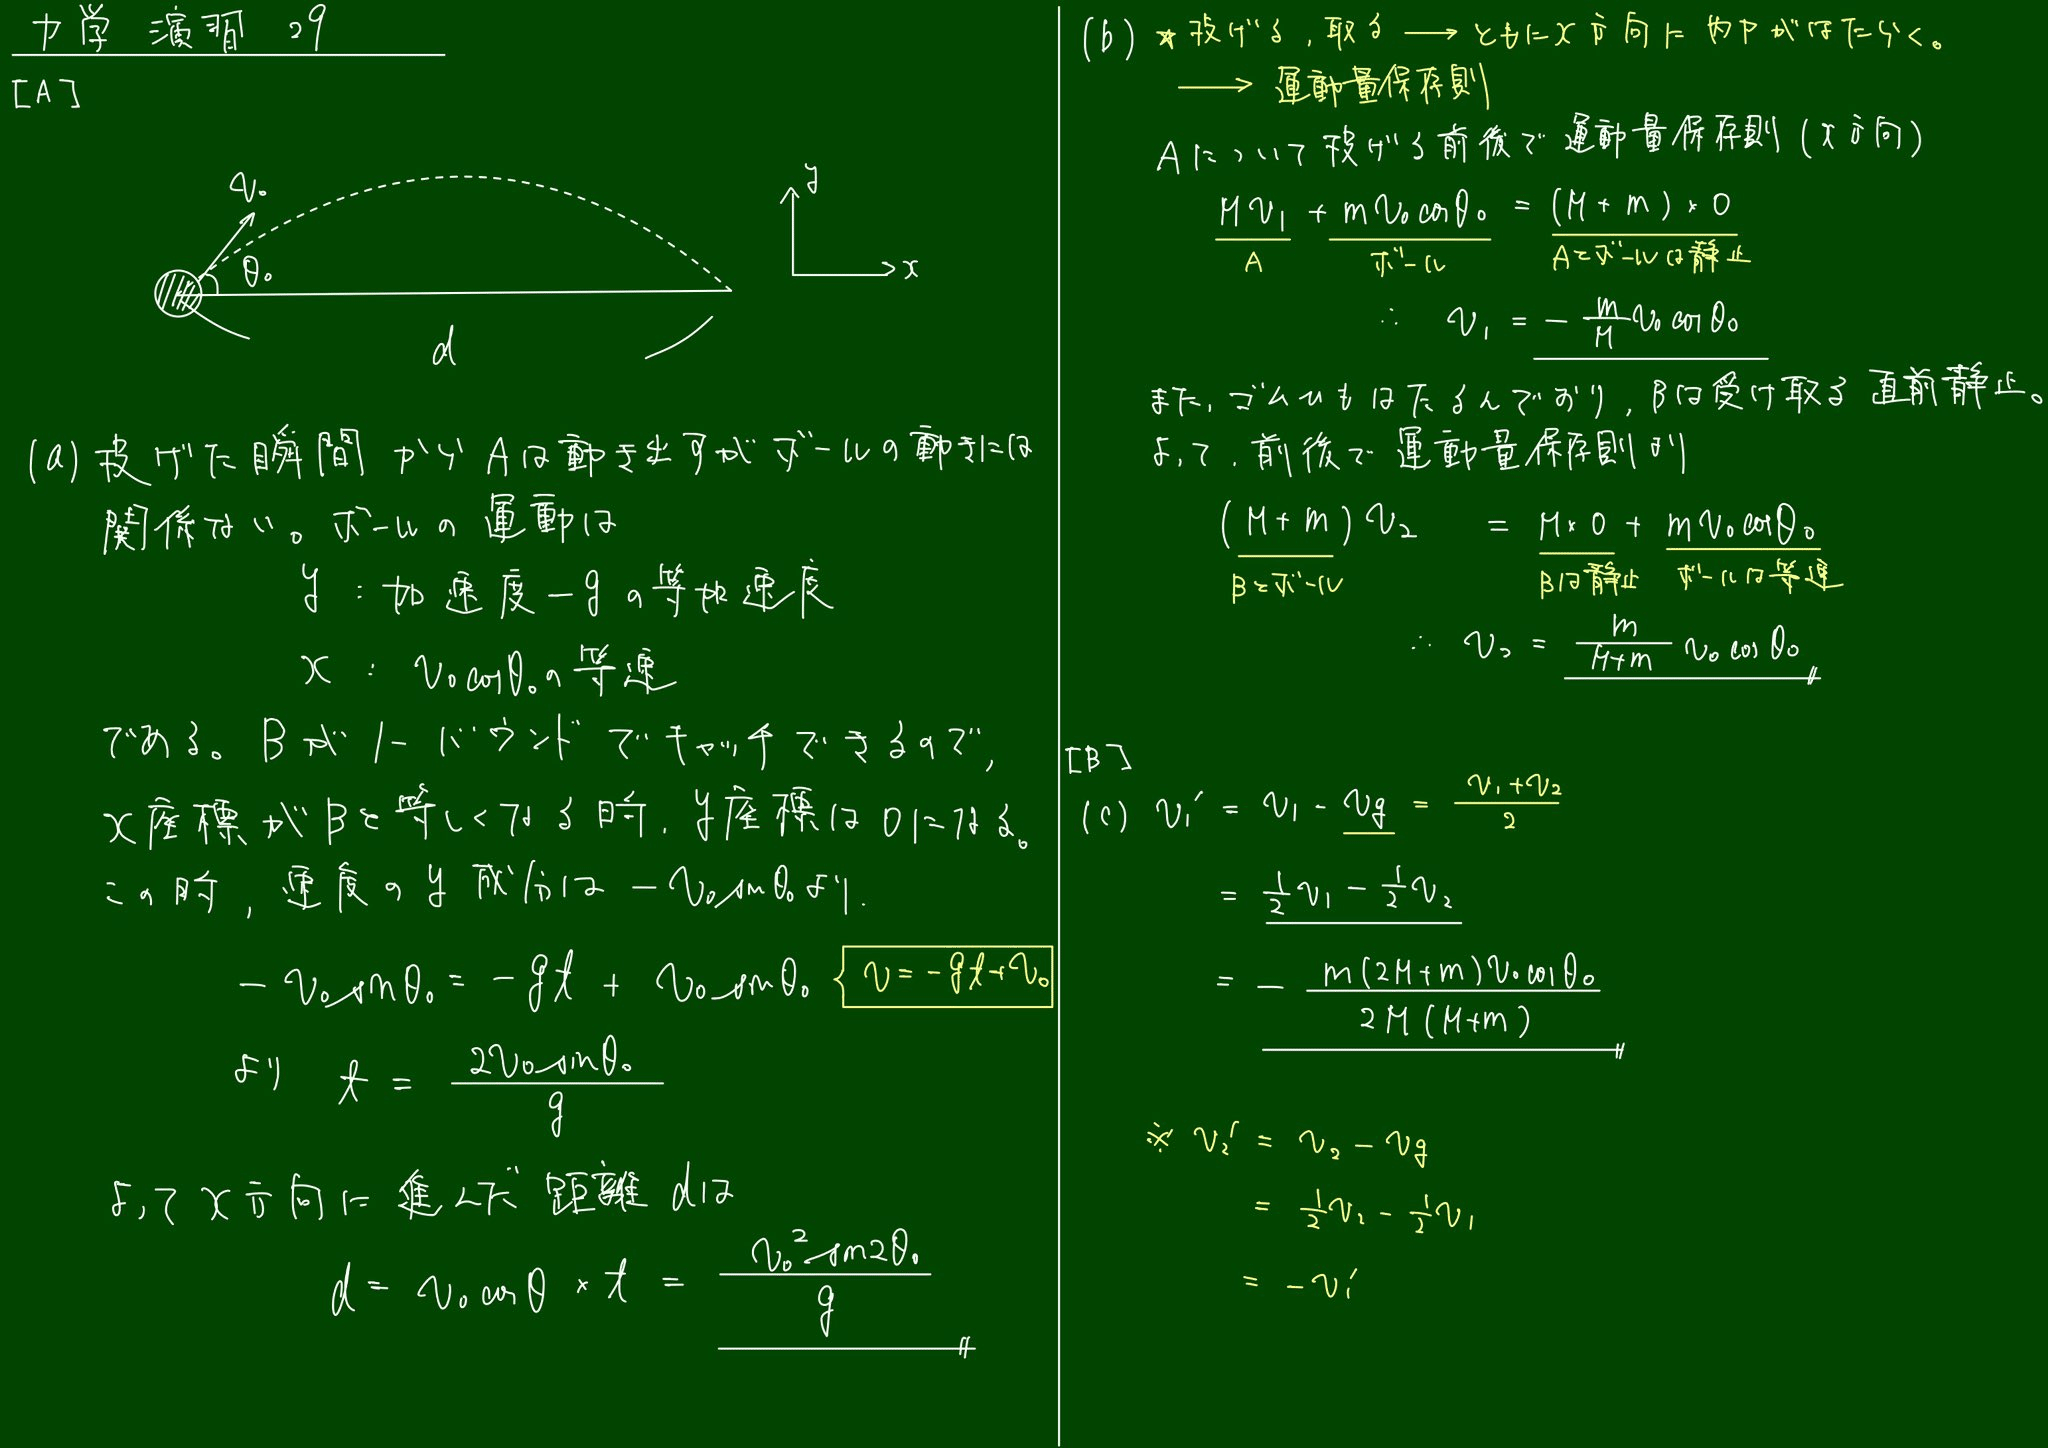 力学 演習 29
[A]
v₀
θ₀
d
y
x
(a) 投げた瞬間からAは動き出すがボールの動きには
関係ない。ボールの運動は
y : 加速度 -g の等加速度
x : v₀cosθ₀の等速
である。Bがノーバウンドでキャッチできるので,
x座標がBと等しくなる時, y座標は0になる。
この時, 速度のy成分は -v₀sinθ₀より.
-v₀sinθ₀ = -gt + v₀sinθ₀ { v = -gt+v₀
より t = 2v₀sinθ₀ / g
よってx方向に進んだ距離dは
d = v₀cosθ × t = v₀²sin2θ₀ / g
(b) ★ 投げる, 取る → ともにx方向に内力がはたらく。
→ 運動量保存則
Aについて投げる前後で運動量保存則 (x方向)
Mv₁ + mv₀cosθ₀ = (M+m)×0
A ボール Aとボールは静止
∴ v₁ = -m/M v₀cosθ₀
また, ゴムひもはたるんでおり, Bは受け取る直前静止。
よって, 前後で運動量保存則より
(M+m)v₂ = M×0 + mv₀cosθ₀
Bとボール Bは静止 ボールは等速
∴ v₂ = m/(M+m) v₀cosθ₀
[B]
(c) v₁' = v₁ - vg = (v₁+v₂)/2
= 1/2 v₁ - 1/2 v₂
= - m(2M+m)v₀cosθ₀ / 2M(M+m)
※ v₂' = v₂ - vg
= 1/2 v₂ - 1/2 v₁
= -v₁'